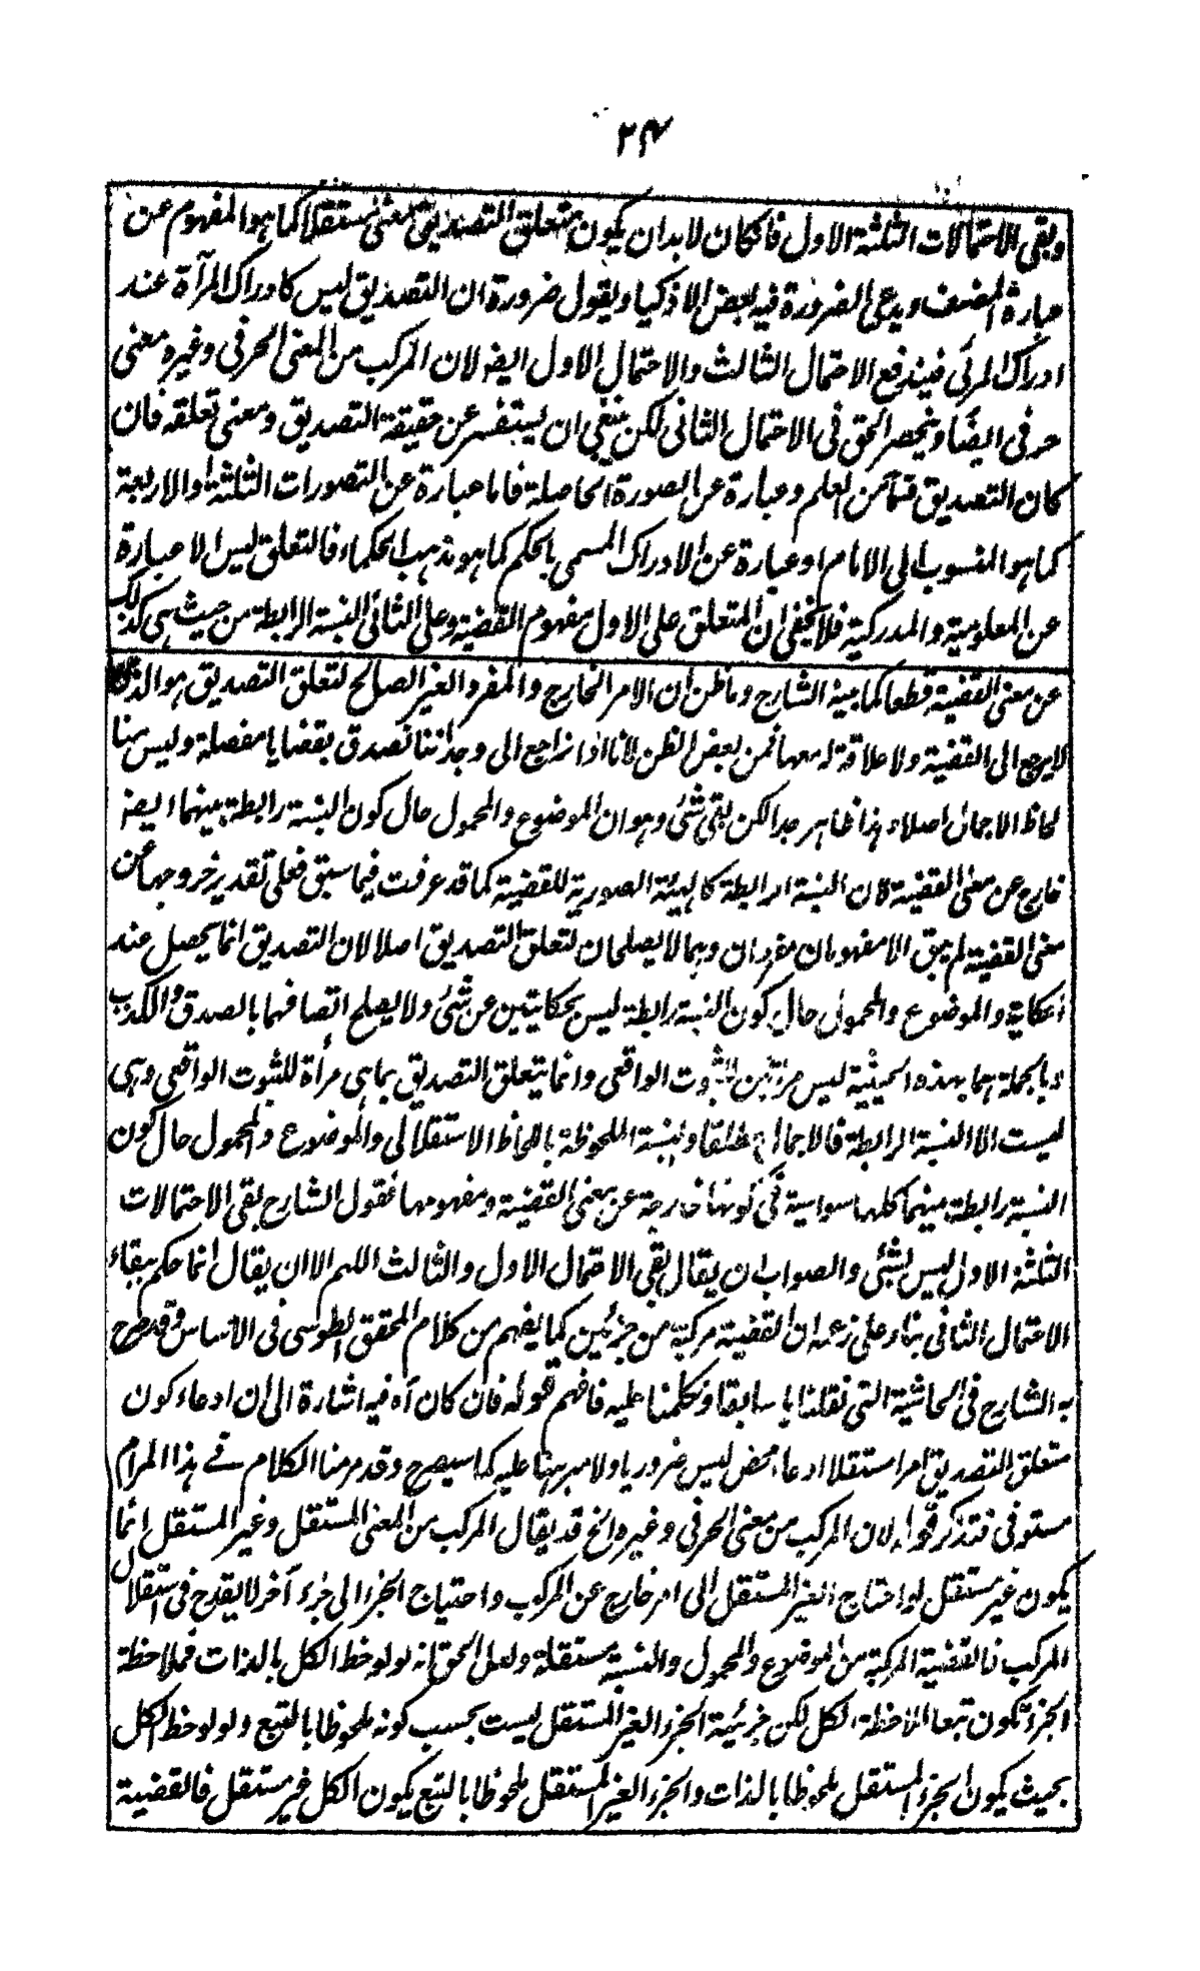 ٢٤
وبقى الاحتمالات الثلثة الاول فان كان لا بد ان يكون متعلق التصديق معنى مستقلا كما هو المفهوم عن
عبارة المصنف ويدعى الضرورة فيه بعض الاذكيا ويقول ضرورة ان التصديق ليس كادراك المرآة عند
ادراك المرئى فيندفع الاحتمال الثالث والاحتمال الاول ايضا لان المركب من المعنى الحرفى وغيره معنى
حرفى ايضا وينحصر الحق فى الاحتمال الثانى لكن ينبغى ان يستفسر عن حقيقة التصديق ومعنى تعلقه فان
كان التصديق قسما من العلم وعبارة عن الصورة الحاصلة فاما عبارة عن التصورات الثلثة او الاربعة
كما هو المنسوب الى الامام او عبارة عن الادراك المسمى بالحكم كما هو مذهب الحكماء فالتعلق ليس الا عبارة
عن المعلومية والمدركية فلا يخفى ان المتعلق على الاول مفهوم القضية وعلى الثانى النسبة الرابطة من حيث هى كذلك
عن معنى القضية قطعا كما بينه الشارح وما ظن ان الامر الخارج والمفرد الغير الصالح لتعلق التصديق هو الذى
لا يرجع الى القضية ولا علاقة له معها فمن بعض الظن لانا اذا نراجع الى وجداننا نصدق بقضايا مفصلة وليس هنا
لحاظ الاجمال اصلا هذا ظاهر جدا لكن بقى شئ وهو ان الموضوع والمحمول حال كون النسبة رابطة بينهما ايضا
خارج عن معنى القضية فان النسبة الرابطة كالهيئة الصورية للقضية كما قد عرفت فيما سبق فعلى تقدير خروجها عن
معنى القضية لم يبق الا مفهومان مفردان وهما لا يصلحان لتعلق التصديق اصلا لان التصديق انما يحصل عند
الحكاية والموضوع والمحمول حال كون النسبة رابطة ليس بحكايتين عن شئ ولا يصلح اتصافهما بالصدق والكذب
وبالجملة هما بهذه الحيثية ليس مرآتين للثبوت الواقعى وانما يتعلق التصديق بما هى مرأة للثبوت الواقعى وهى
ليست الا النسبة الرابطة فالاجمال مطلقا والنسبة الملحوظة باللحاظ الاستقلالى والموضوع والمحمول حال كون
النسبة رابطة بينهما كلها سواسية فى كونها خارجة عن معنى القضية ومفهومها فقول الشارح بقى الاحتمالات
الثلثة الاول ليس بشئ والصواب ان يقال بقى الاحتمال الاول والثالث اللهم الا ان يقال انما حكم ببقاء
الاحتمال الثانى بناء على زعمه ان القضية مركبة من جزئين كما يفهم من كلام المحقق الطوسى فى الاساس وقد صرح
به الشارح فى الحاشية التى نقلناها سابقا وتكلمنا عليه فافهم قوله فان كان آه فيه اشارة الى ان ادعاء كون
متعلق التصديق امرا مستقلا ادعاء محض ليس ضروريا ولا مبرهنا عليه كما سيصرح وقد مر منا الكلام فى هذا المرام
مستوفى فتذكر قوله لان المركب من معنى الحرفى وغيره الخ قد يقال المركب من المعنى المستقل وغير المستقل انما
يكون غير مستقل لو احتاج الغير المستقل الى امر خارج عن المركب واحتياج الجزء الى جزء آخر لا يقدح فى استقلال
المركب فالقضية المركبة من الموضوع والمحمول والنسبة مستقلة ولعل الحق انه لو لوحظ الكل بالذات فملاحظة
الجزء تكون تبعا لملاحظة الكل لكن جزئية الجزء الغير المستقل ليست بحسب كونه ملحوظا بالتبع ولو لوحظ الكل
بحيث يكون الجزء المستقل ملحوظا بالذات والجزء الغير المستقل ملحوظا بالتبع يكون الكل غير مستقل فالقضية